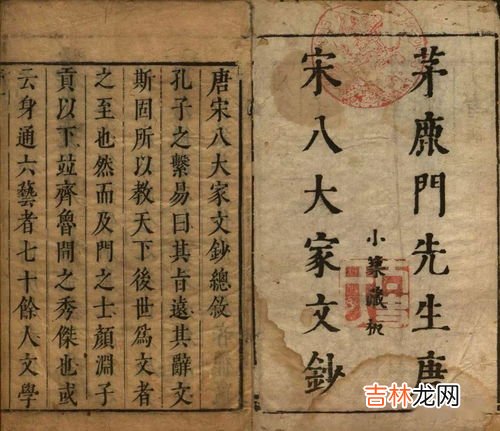 茅鹿門先生唐
宋八大家文鈔
小築藏板
唐宋八大家文鈔總敘
孔子之繫易曰其旨遠其辭文
斯固所以教天下後世爲文者
之至也然而及門之士顏淵子
貢以下竝齊魯間之秀傑也或
云身通六藝者七十餘人文學
吉林龙网